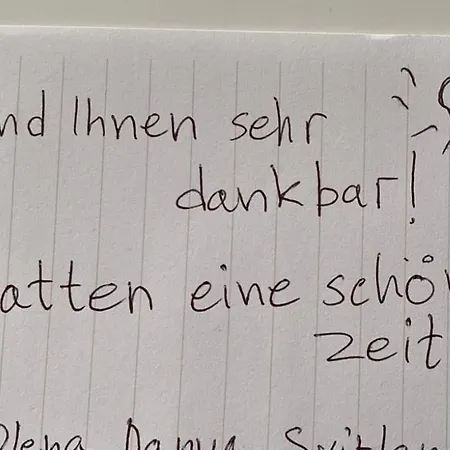 nd Ihnen sehr
dankbar!
atten eine schön
zeit
Olena Danya Svitlan